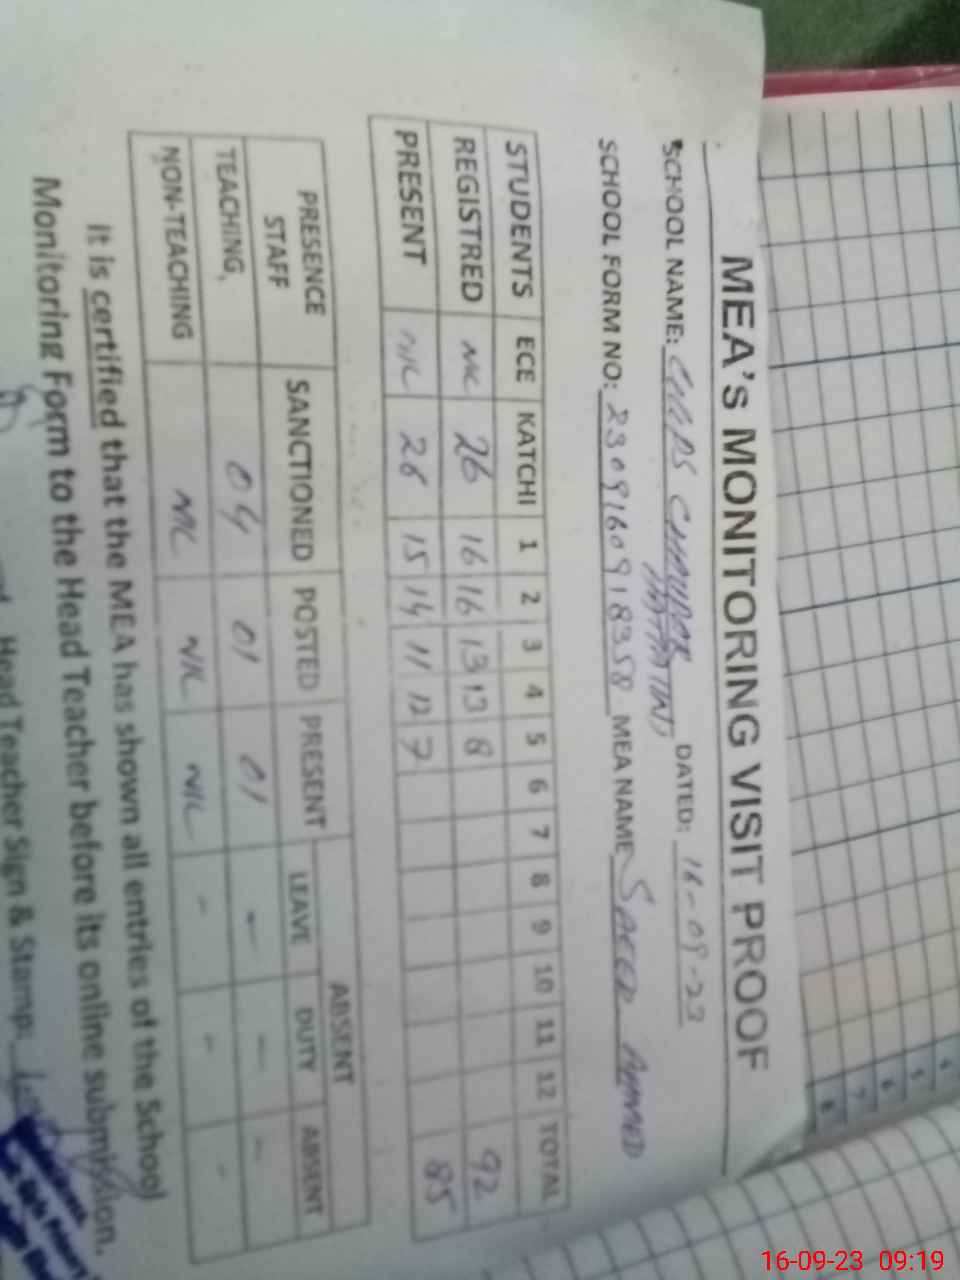 MEA'S MONITORING VISIT PROOF
SCHOOL NAME: DATED: 16-09-23
SCHOOL FORM NO: 2309160918358 MEA NAME SAEED AHMED
STUDENTS ECE KATCHI 1 2 3 4 5 6 7 8 9 10 11 12 TOTAL
REGISTRED NIL 26 16 16 13 13 8 92
PRESENT NIL 26 15 14 11 12 7 85
PRESENCE STAFF SANCTIONED POSTED PRESENT ABSENT
LEAVE DUTY ABSENT
TEACHING 04 01 01 - - -
NON-TEACHING NIL NIL NIL - - -
It is certified that the MEA has shown all entries of the School
Monitoring Form to the Head Teacher before its online submission.
Head Teacher Sign & Stamp:
4
5
6
7
8
16-09-23 09:19